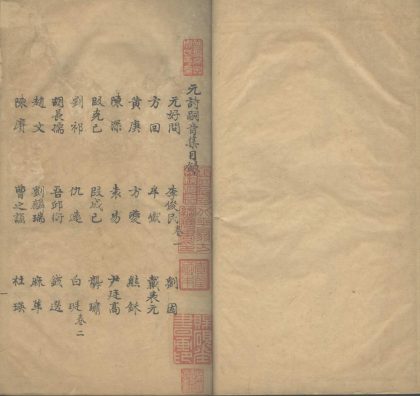 元詩嗣音集目錄
元好問 李俊民 卷一 劉因
方回 牟巘 戴表元
黃庚 方夔 熊鉌
陳深 袁易 尹廷高
段克己 段成己 龔璛
劉祁 仇遠 白珽 卷二
胡長孺 吾邱衍 錢選
趙文 劉麟瑞 麻革
陳賡 曹之謙 杜瑛